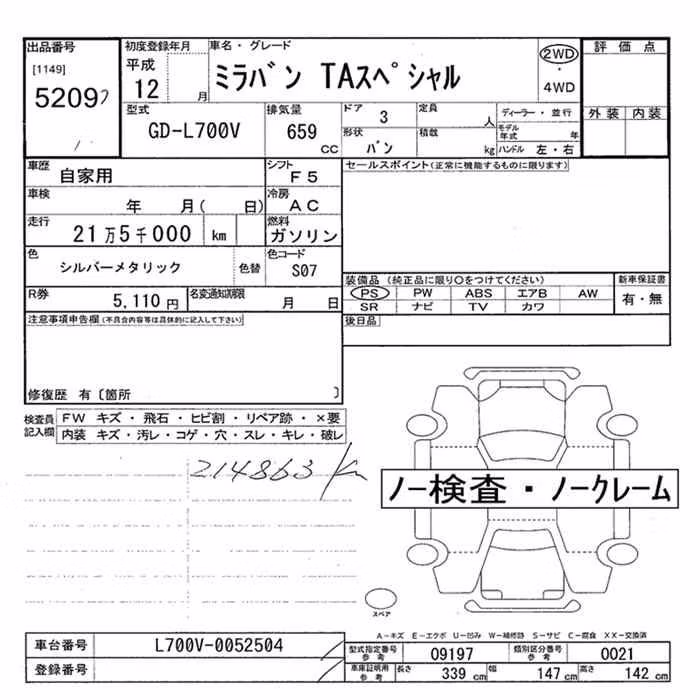 出品番号
[1149]
5209ﾌ
初度登録年月
平成
12 月
車名・グレード
ミラバン TAスペシャル
2WD
・
4WD
評価点
外装 内装
型式
GD-L700V
排気量
659
cc
ドア
3
定員
人
形状
バン
積載
kg
ディーラー・並行
モデル年式 年
ハンドル 左・右
車歴
自家用
シフト
F5
セールスポイント(正常に機能するものに限ります)
車検
年 月( 日)
冷房
AC
走行
21万5千000 km
燃料
ガソリン
色
シルバーメタリック
色替
色コード
S07
装備品 (純正品に限り○をつけてください)
PS PW ABS エアB AW
SR ナビ TV カワ
新車保証書
有・無
R券
5,110 円
名変通知期限
月 日
後日品
注意事項申告欄(不具合内容等は具体的に記入して下さい)
修復歴 有〔箇所 〕
検査員記入欄
FW キズ・飛石・ヒビ割・リペア跡・×要
内装 キズ・汚レ・コゲ・穴・スレ・キレ・破レ
214863 km
ノー検査・ノークレーム
スペア
A-キズ E-エクボ U-凹み W-補修跡 S-サビ C-腐食 XX-交換済
車台番号
L700V-0052504
登録番号
型式指定番号参考
09197
類別区分番号参考
0021
車庫証明用参考
長さ 339 cm
幅 147 cm
高さ 142 cm